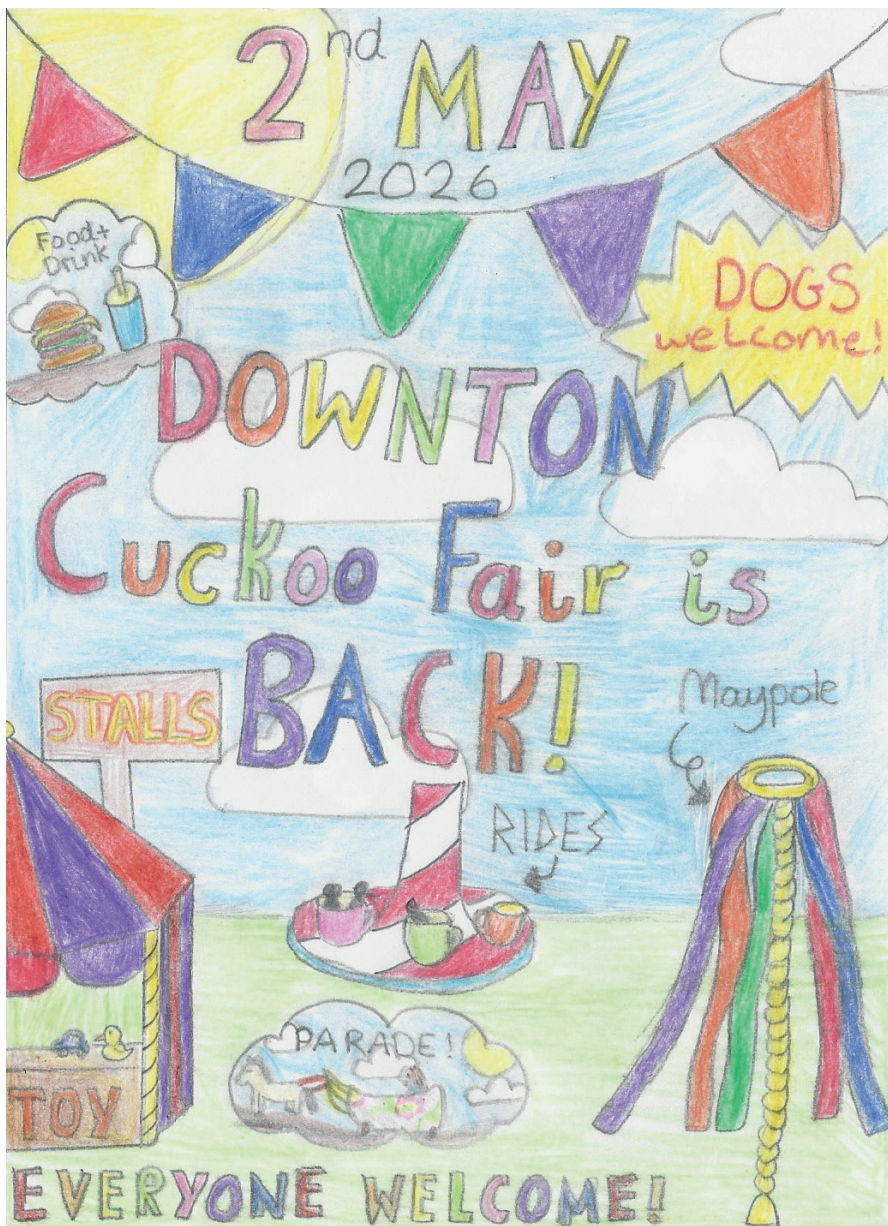 2nd MAY
2026
Food +
Drink
DOGS
welcome!
DOWNTON
Cuckoo Fair is
BACK!
STALLS
Maypole
RIDES
PARADE!
TOY
EVERYONE WELCOME!